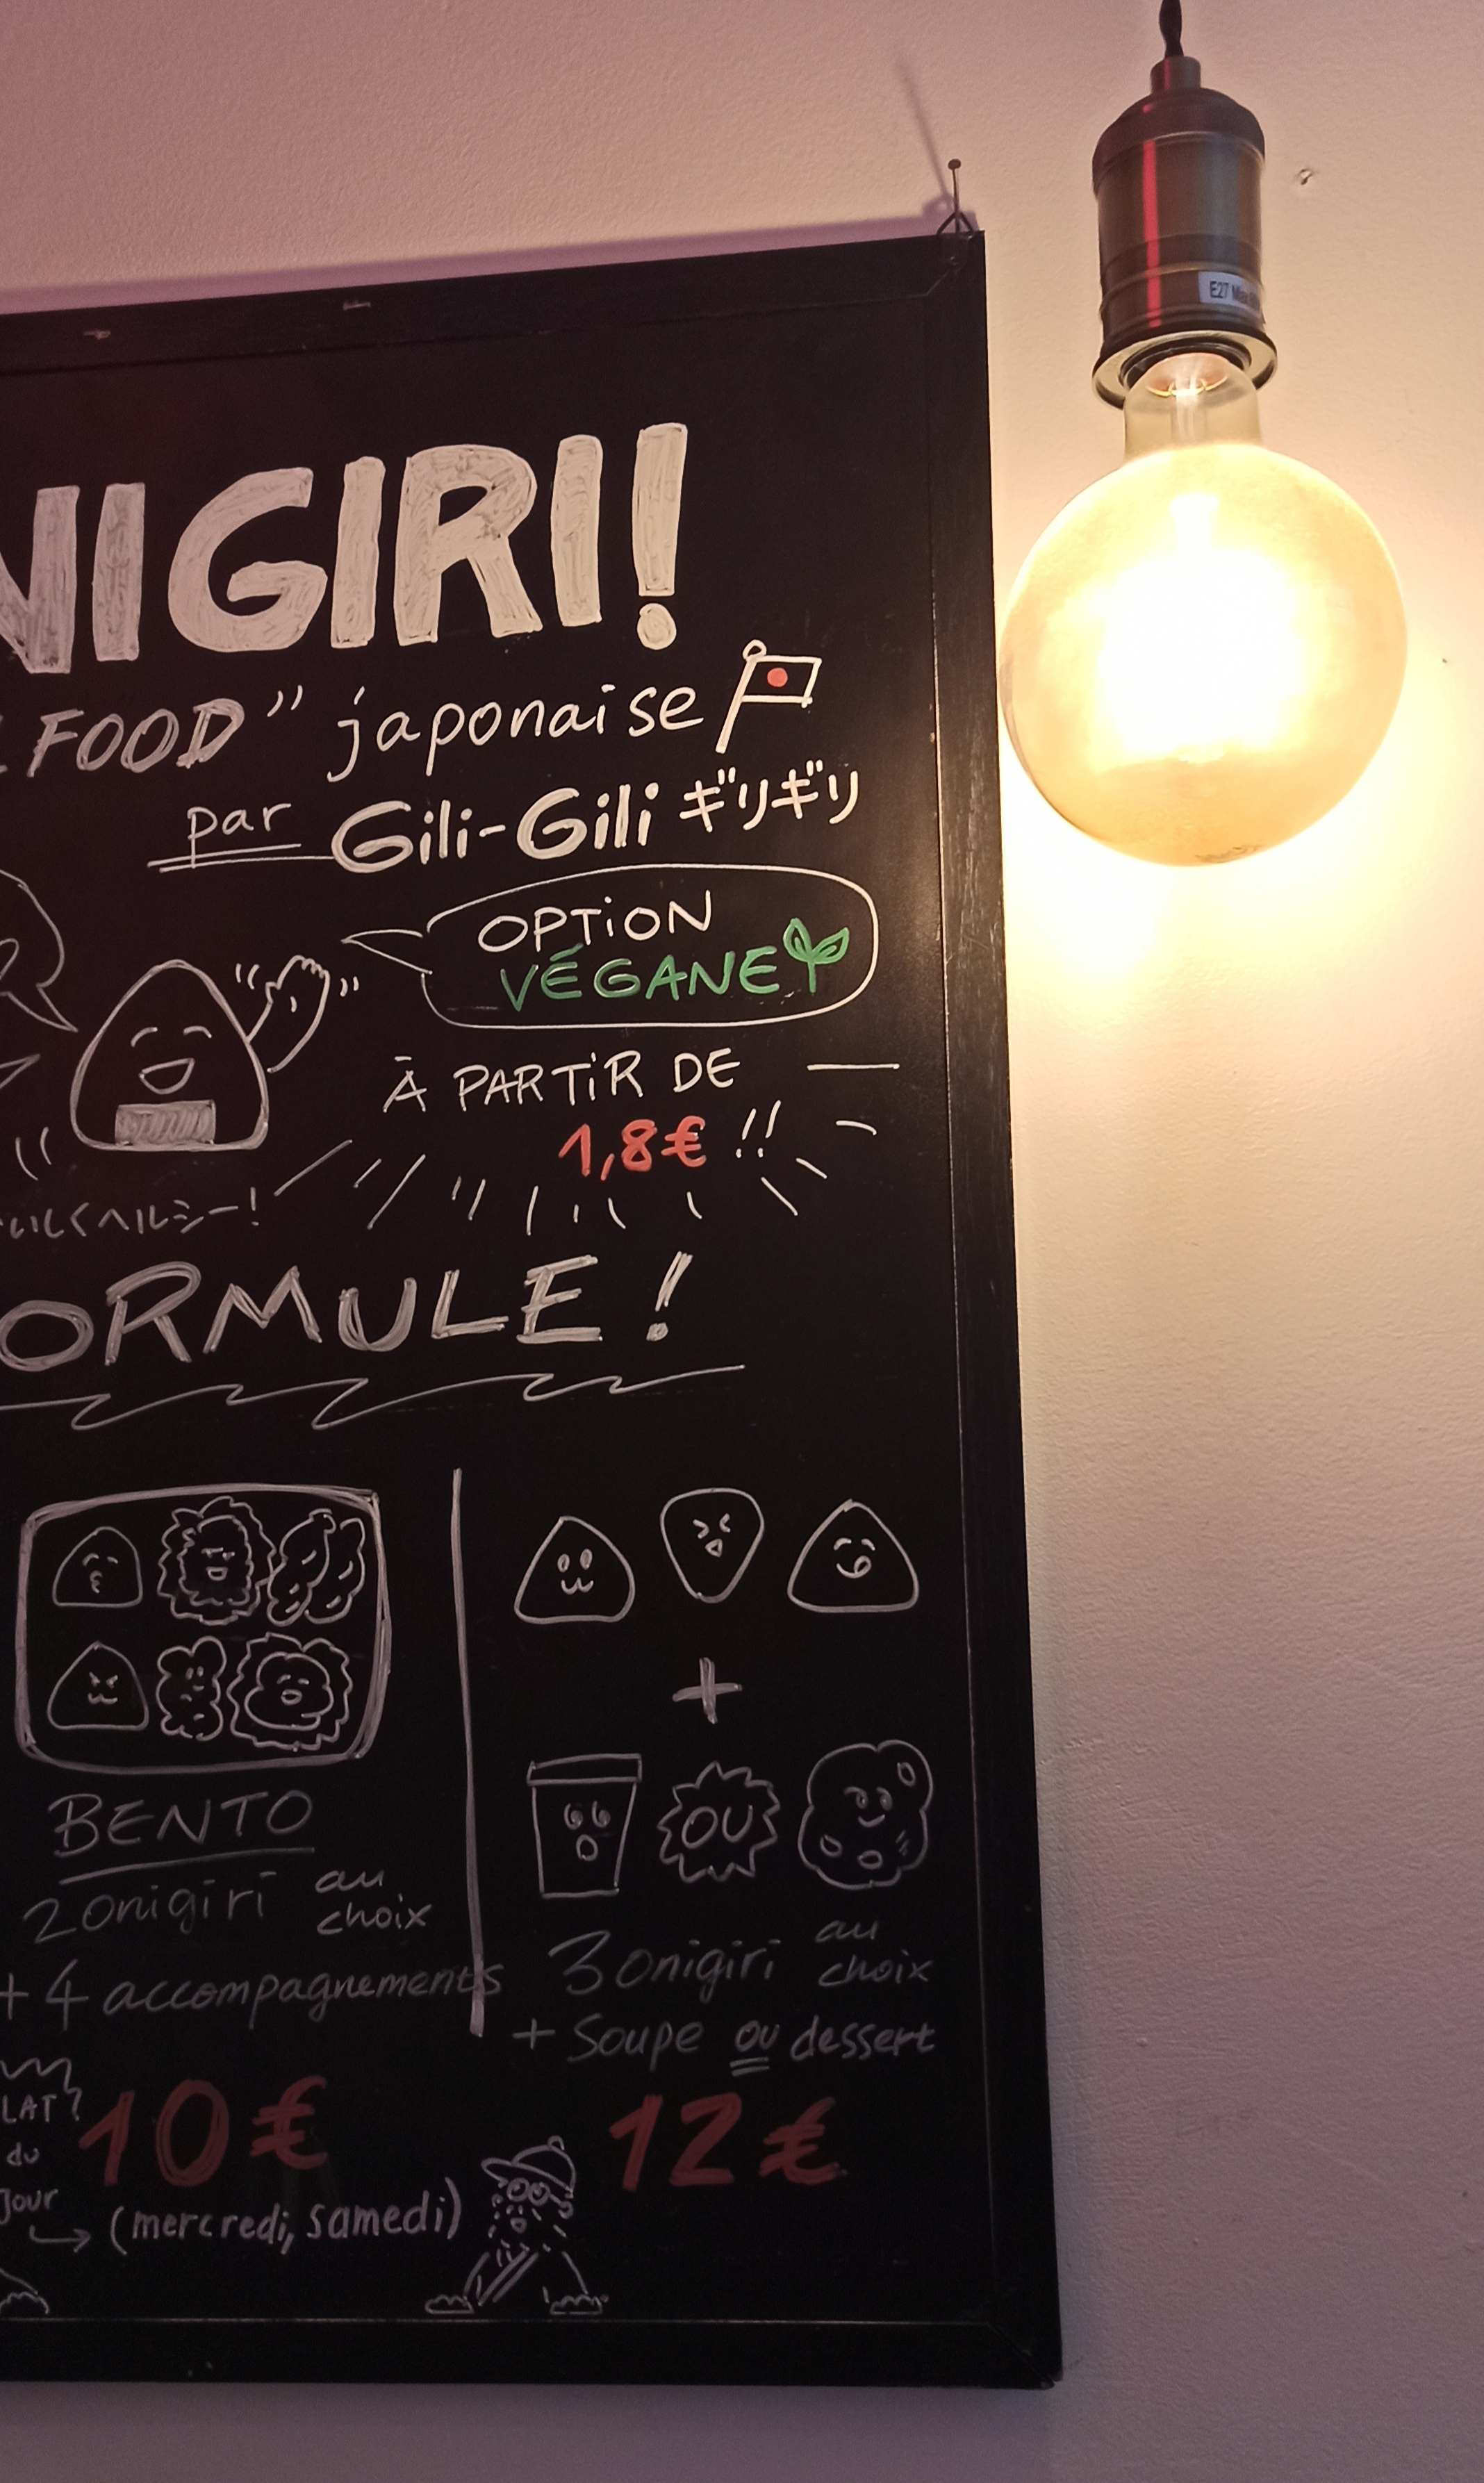 NIGIRI!
FOOD" japonaise
par Gili-Gili ギリギリ
OPTION
VÉGANE
À PARTIR DE
1,8€ !!
いしくヘルシー!
ORMULE!
BENTO
2 onigiri au choix
+ 4 accompagnements
10€
OU
3 onigiri au choix
+ Soupe ou dessert
12€
LAT
du
jour
(mercredi, samedi)
E27